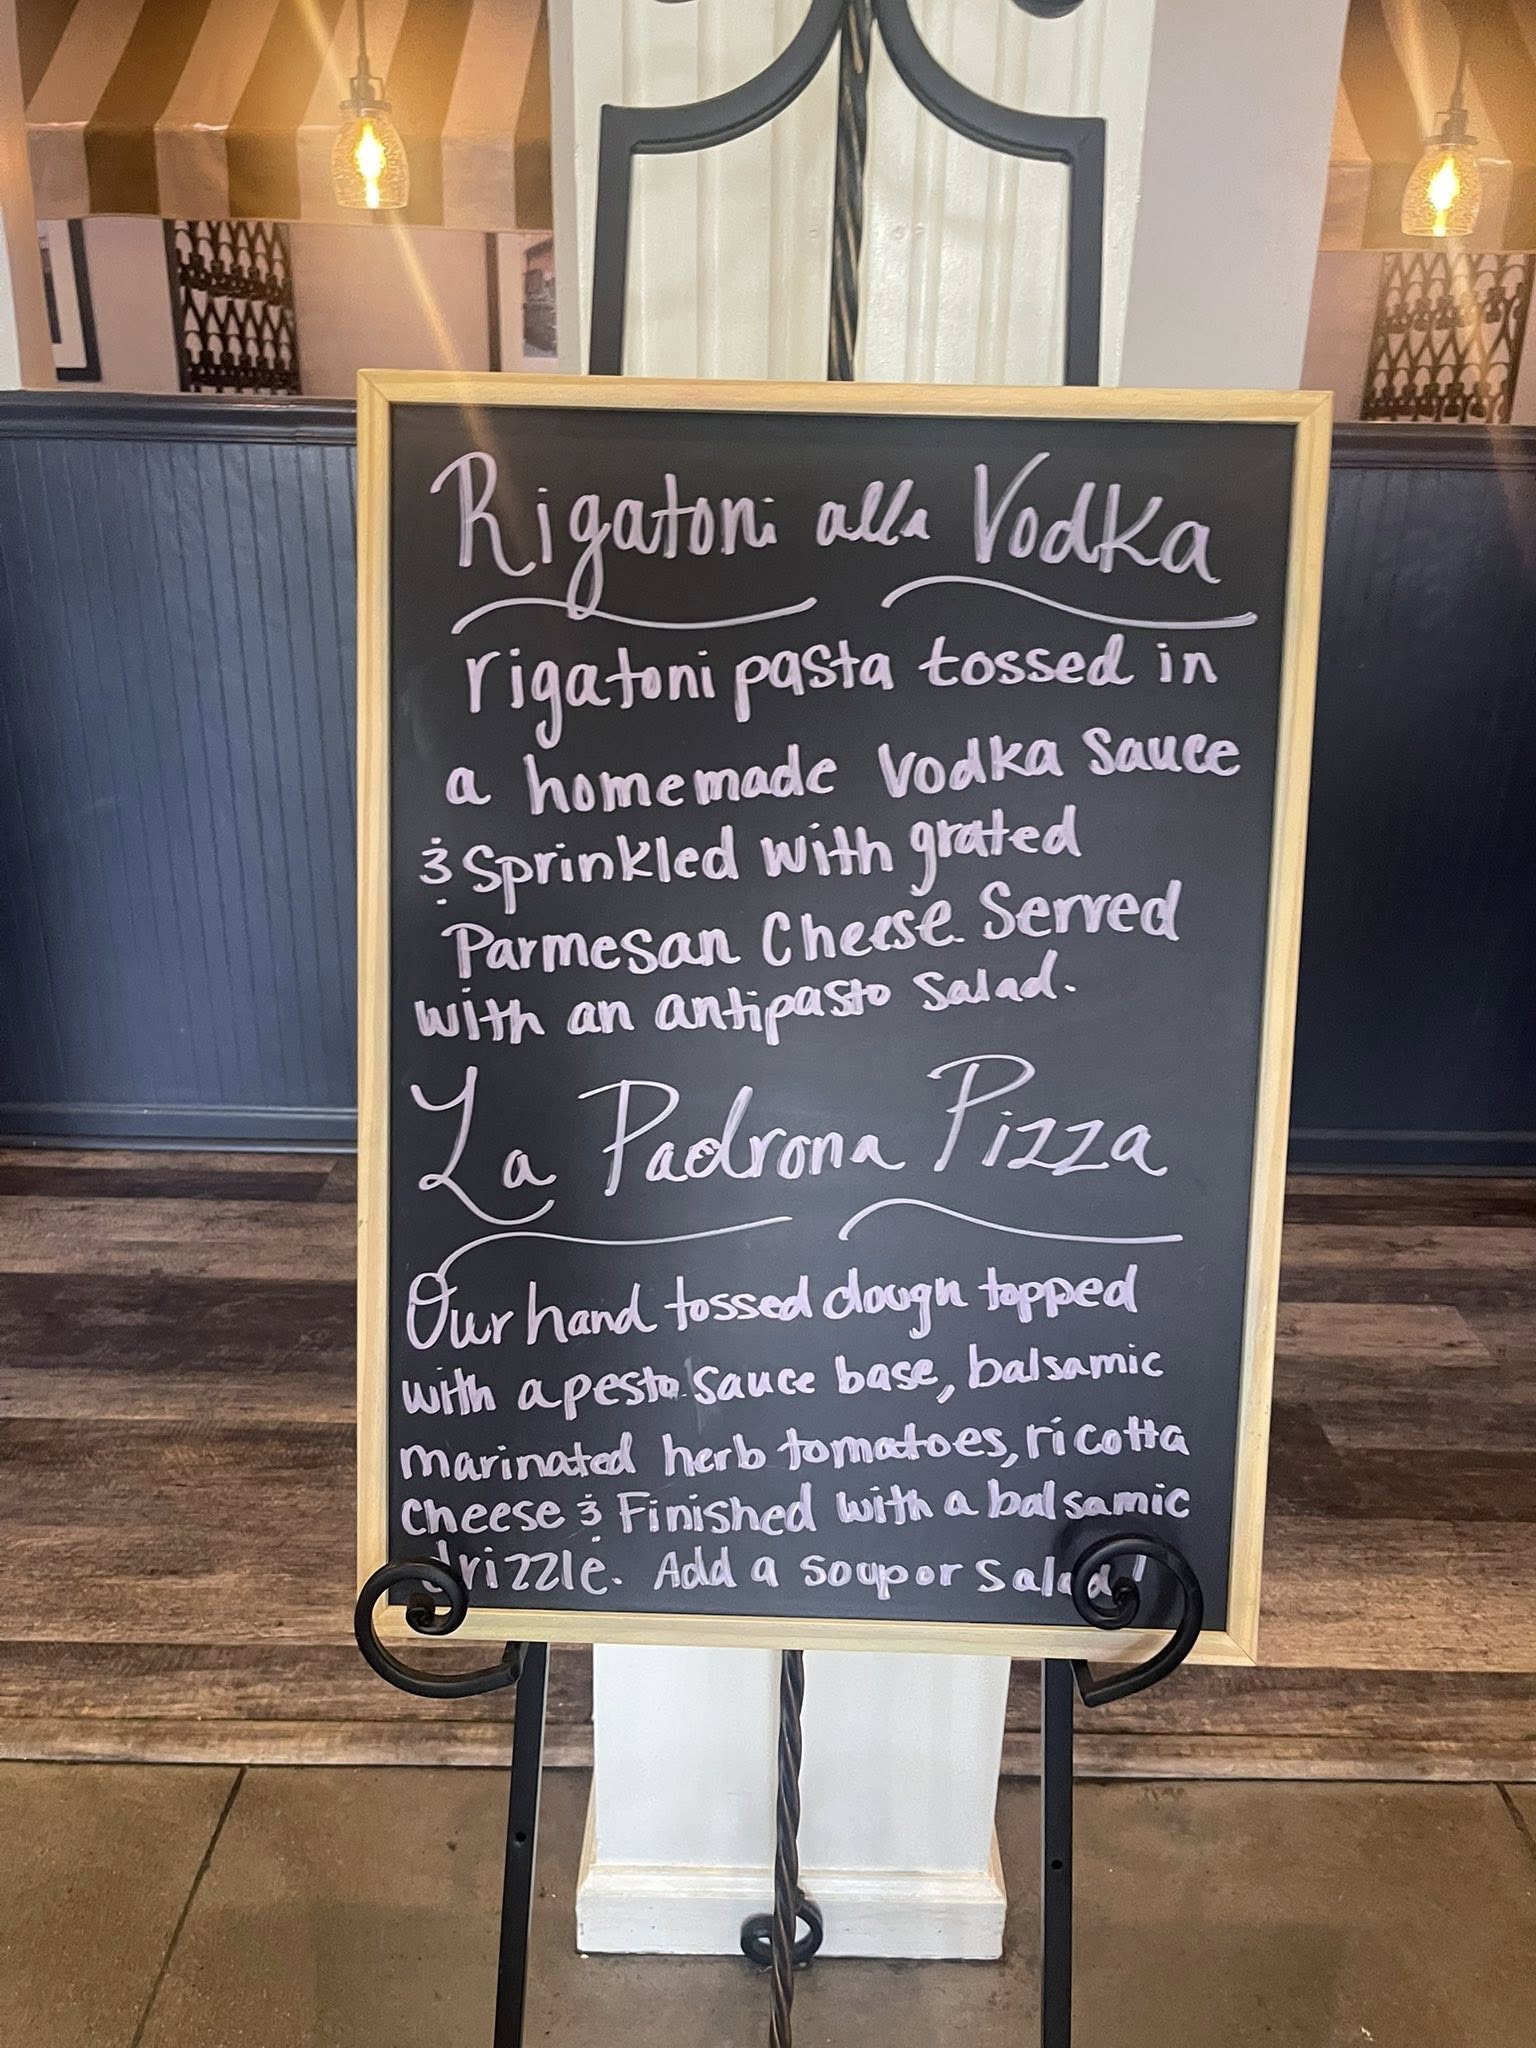 Rigatoni alla Vodka
rigatoni pasta tossed in
a homemade Vodka Sauce
& Sprinkled with grated
Parmesan Cheese. Served
with an antipasto salad.
La Padrona Pizza
Our hand tossed dough topped
with a pesto sauce base, balsamic
marinated herb tomatoes, ricotta
cheese & Finished with a balsamic
drizzle. Add a soup or salad!